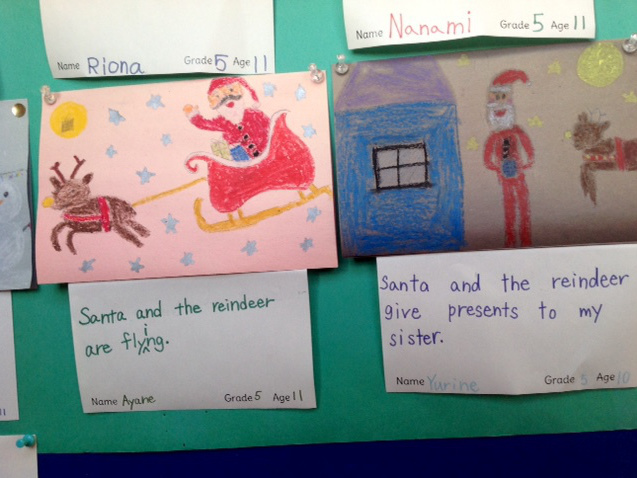 Name Riona Grade 5 Age 11
Name Nanami Grade 5 Age 11
Santa and the reindeer
are flying.
Name Ayane Grade 5 Age 11
Santa and the reindeer
give presents to my
sister.
Name Yurine Grade 5 Age 10
11